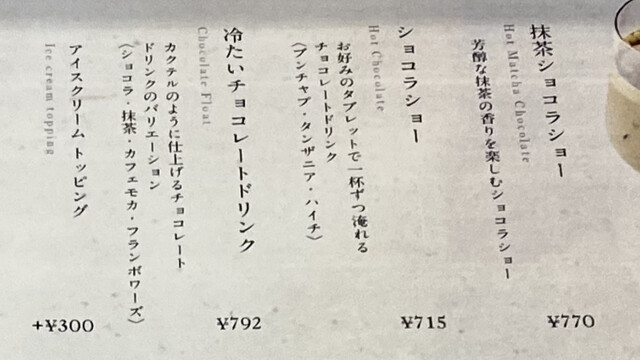 抹茶ショコラショー
Hot Matcha Chocolate
芳醇な抹茶の香りを楽しむショコラショー
¥770
ショコラショー
Hot Chocolate
お好みのタブレットで一杯ずつ淹れる
チョコレートドリンク
（プンチャブ・タンザニア・ハイチ）
¥715
冷たいチョコレートドリンク
Chocolate Float
カクテルのように仕上げるチョコレート
ドリンクのバリエーション
（ショコラ・抹茶・カフェモカ・フランボワーズ）
¥792
アイスクリーム トッピング
Ice cream topping
+¥300